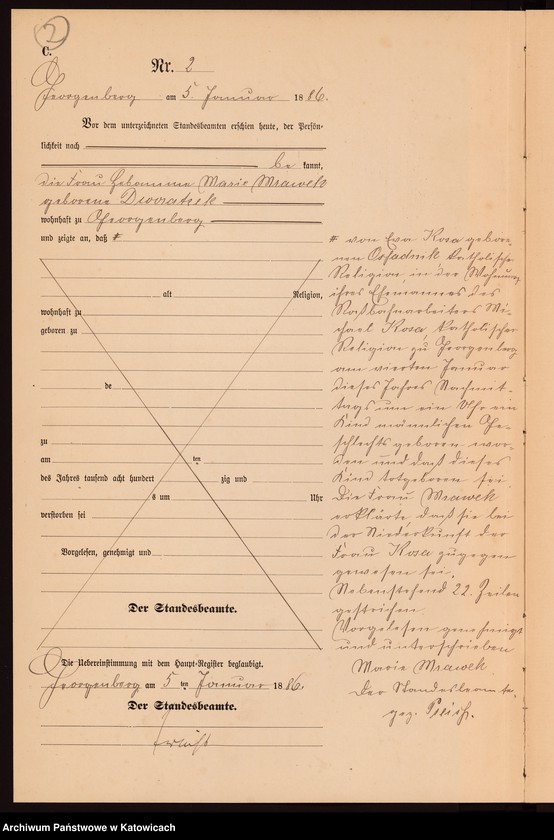 2
C.
Nr. 2
Georgenberg am 5 Januar 1886.
Vor dem unterzeichneten Standesbeamten erschien heute, der Persön-
lichkeit nach
be kannt,
die Frau Hebamme Marie Mrawek
geborene Dworatzek
wohnhaft zu Georgenberg
und zeigte an, daß #
alt Religion,
wohnhaft zu
geboren zu
de
zu
am ten
des Jahres tausend acht hundert zig und
s um Uhr
verstorben sei
Vorgelesen, genehmigt und
Der Standesbeamte.
Die Uebereinstimmung mit dem Haupt-Register beglaubigt.
Georgenberg am 5 ten Januar 1886.
Der Standesbeamte.
# von Eva Kosa gebore-
nen Osadnik katholischer
Religion in der Wohnung
ihres Ehemannes des
Roßbahnarbeiters Mi-
chael Kosa, katholischer
Religion zu Georgenberg
am vierten Januar
dieses Jahres Nachmit-
tags um ein Uhr ein
Kind männlichen Ge-
schlechts geboren wor-
den und daß dieses
Kind totgeboren sei.
Die Frau Mrawek
erklärte daß sie bei
der Niederkunft der
Frau Kosa zugegen
gewesen sei.
Nebenstehend 22 Zeilen
gestrichen.
Vorgelesen genehmigt
und unterschrieben
Marie Mrawek
Der Standesbeamte.
gez.
Archiwum Państwowe w Katowicach